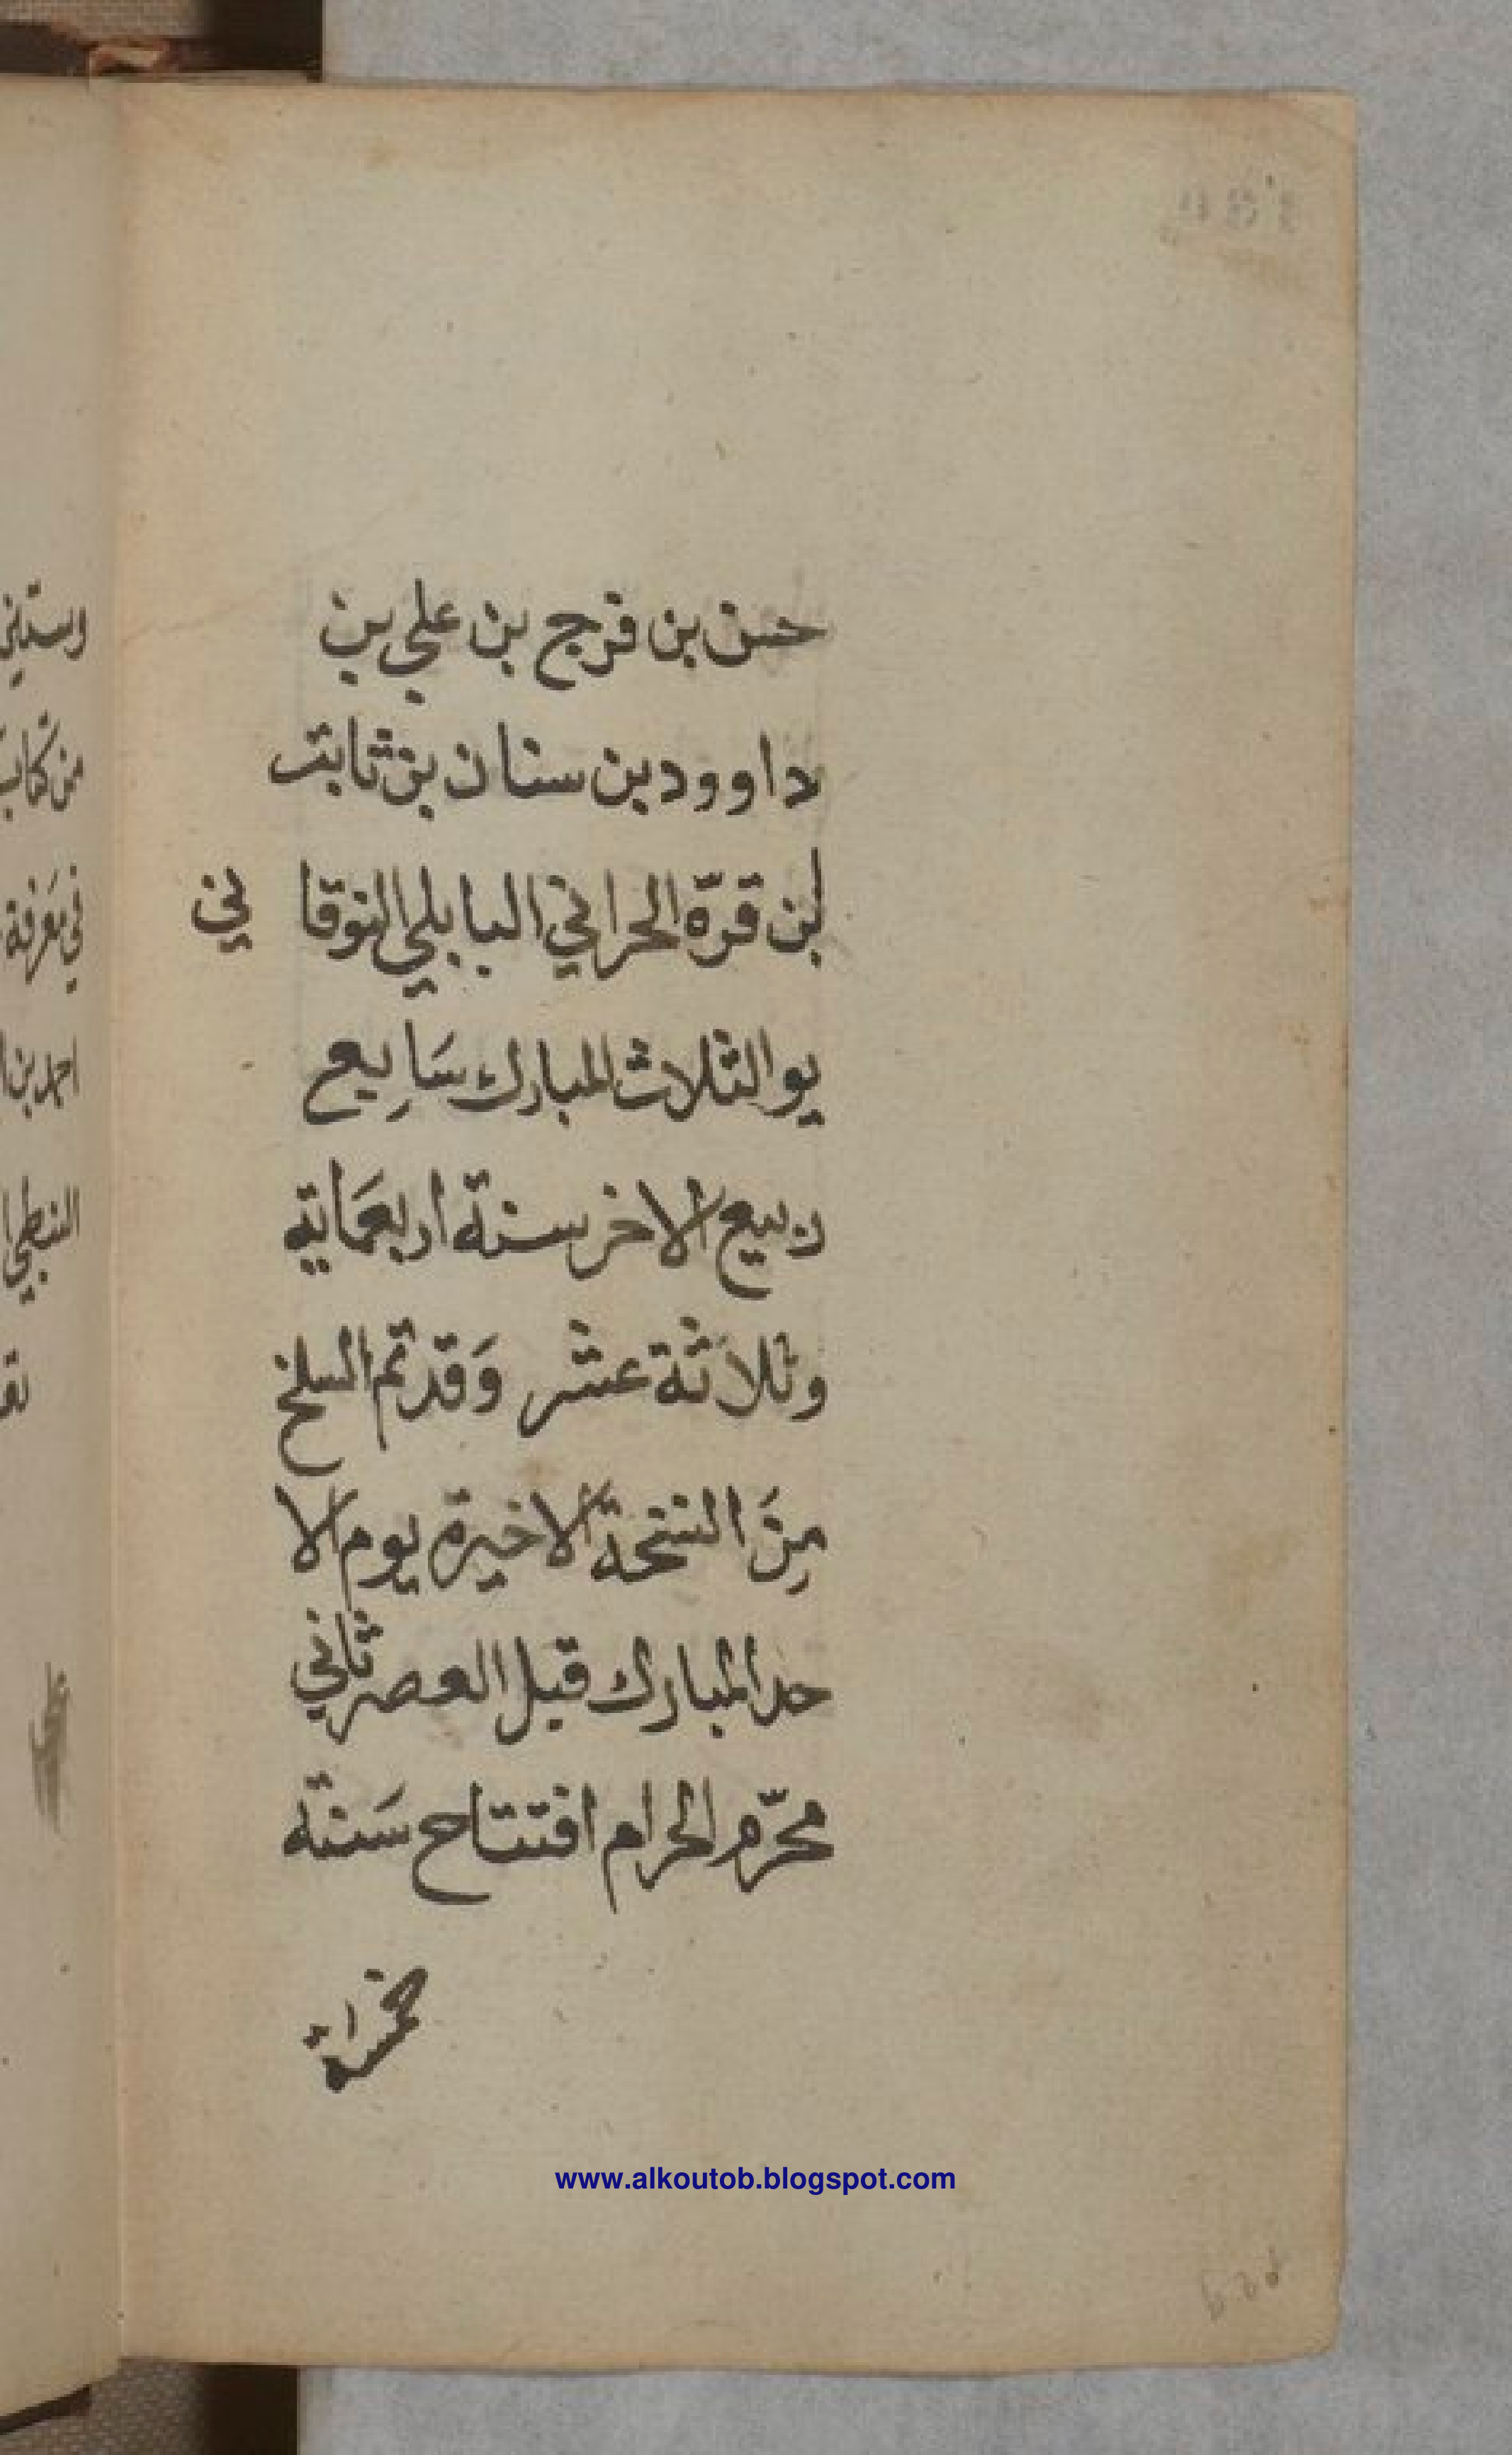 حسن بن فرج بن علي بن
داوود بن سنان بن ثابت
ابن قرّة الحراني البابلي النوقا ني
يو الثلاث المبارك سَابِع
ربيع الاخر سنة اربعمَاية
وثلاثة عشر وَقد تم السلخ
مِنَ النسخة الاخيرة يوم الا
حد المبارك قبل العصر ثاني
محرّم الحرام افتتاح سَنة
www.alkoutob.blogspot.com